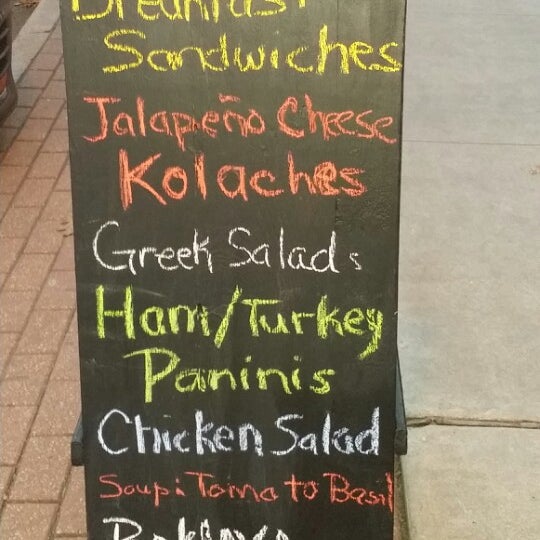 Breakfast
Sandwiches
Jalapeño Cheese
Kolaches
Greek Salads
Ham/Turkey
Paninis
Chicken Salad
Soup: Tomato Basil
Baklava